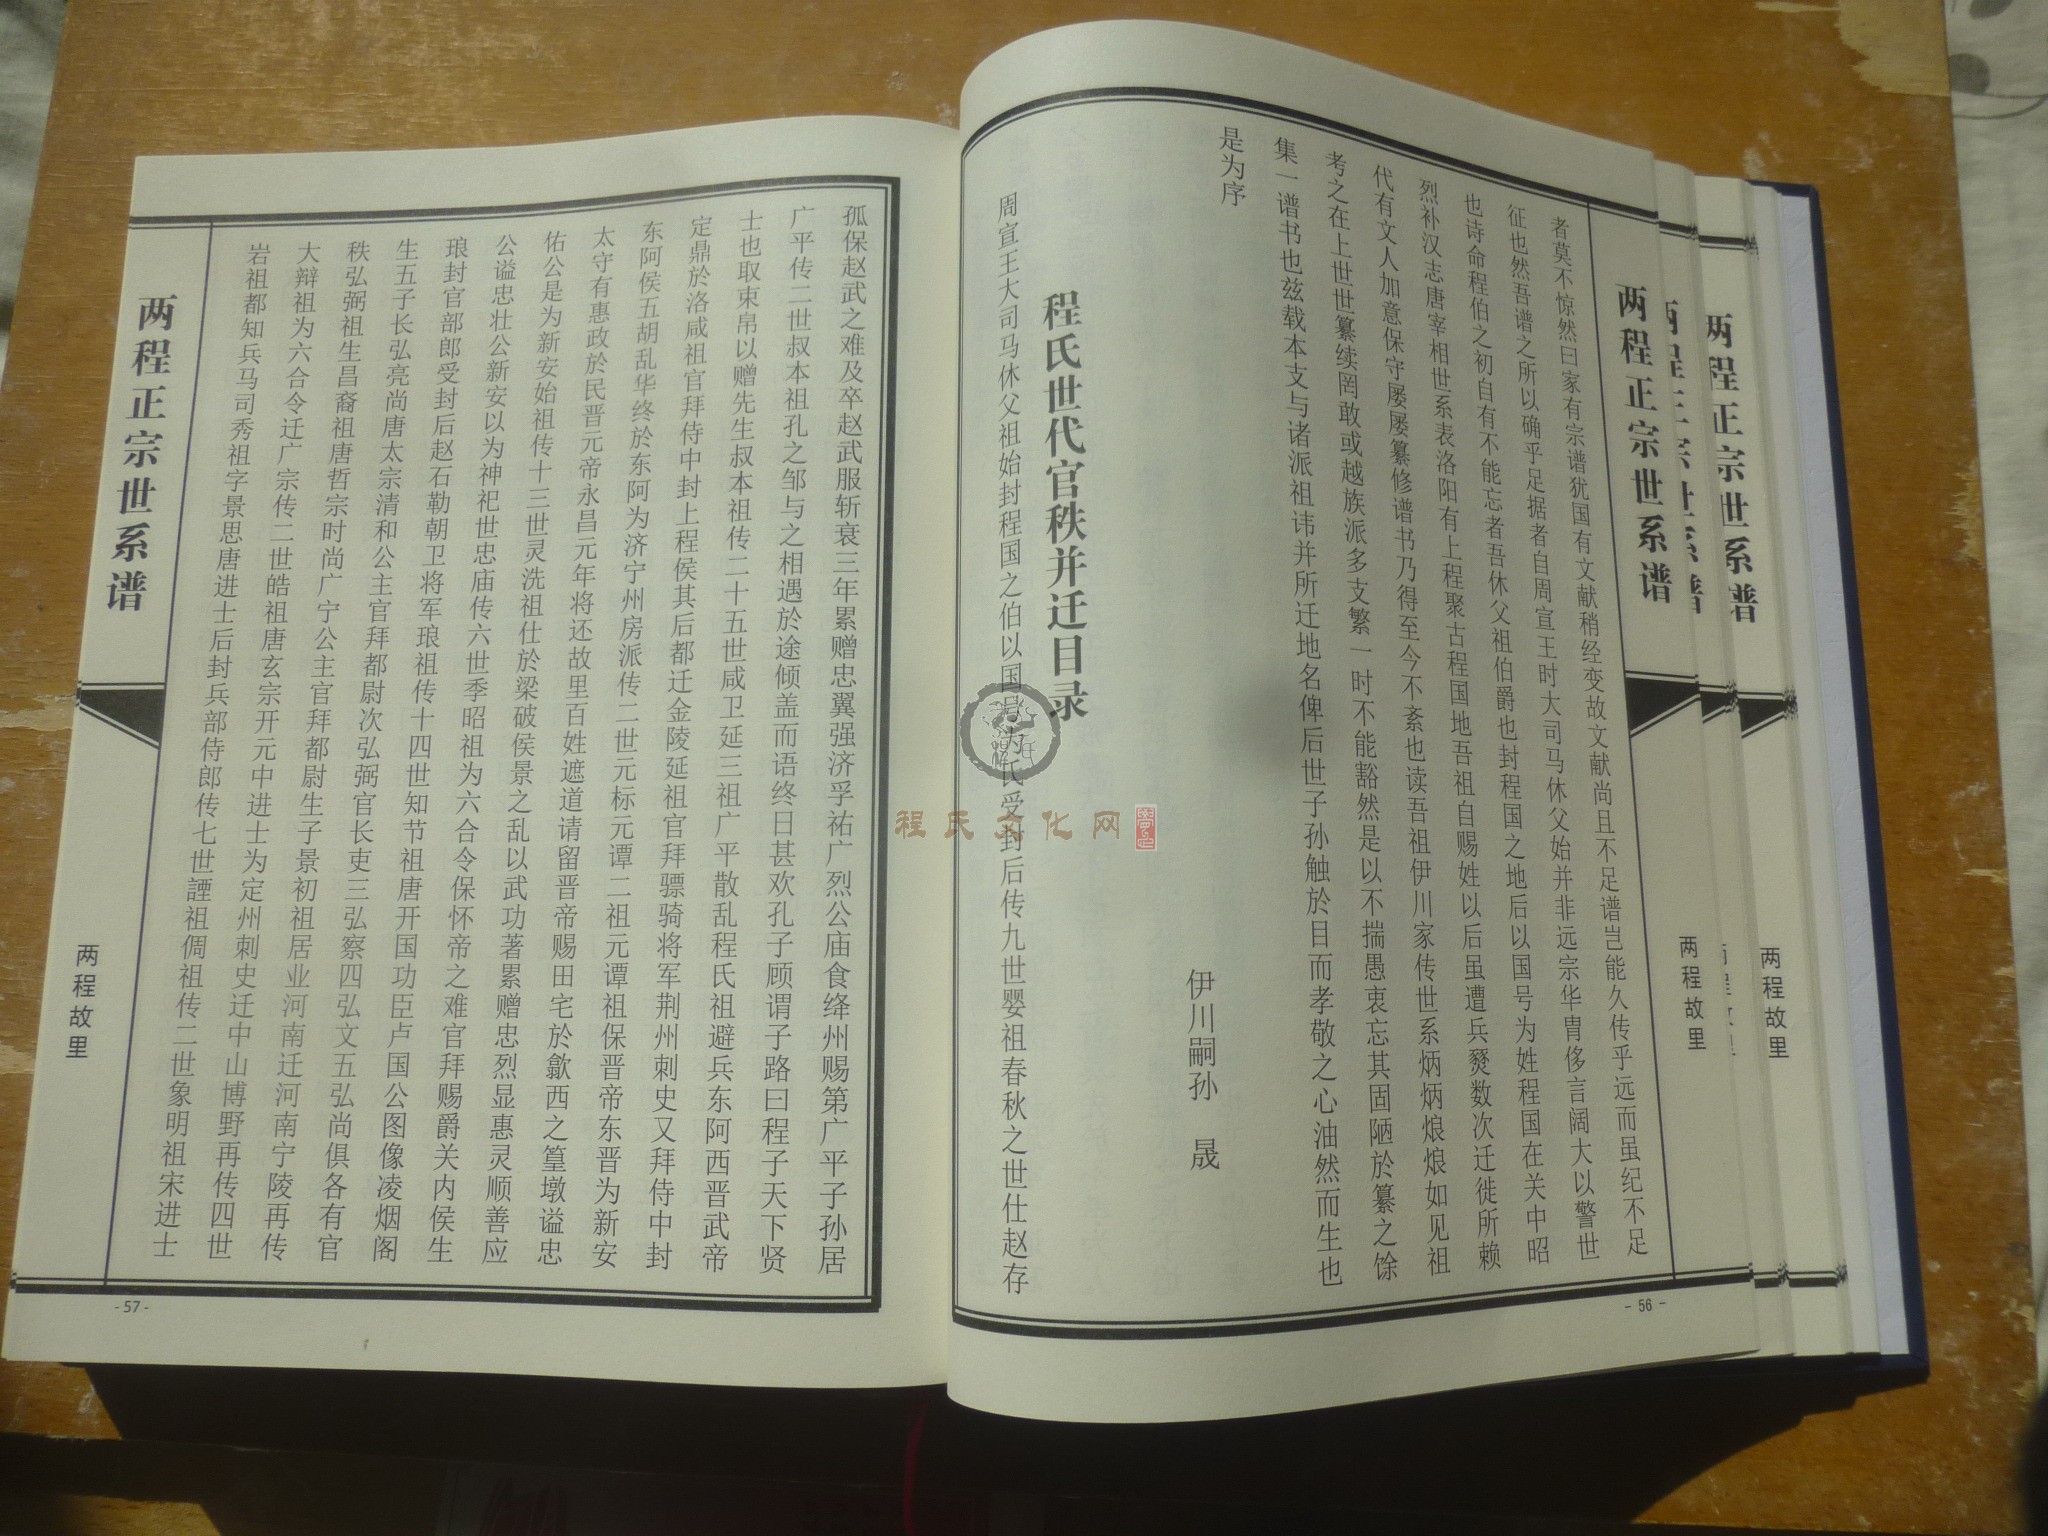 两程正宗世系谱
两程故里
者莫不惊然曰家有宗谱犹国有文献稍经变故文献尚且不足谱岂能久传乎远而虽纪不足
征也然吾谱之所以确乎足据者自周宣王时大司马休父始并非远宗华胄侈言阔大以警世
也诗命程伯之初自有不能忘者吾休父祖伯爵也封程国之地后以国号为姓程国在关中昭
烈补汉志唐宰相世系表洛阳有上程聚古程国地吾祖自赐姓以后虽遭兵燹数次迁徙所赖
代有文人加意保守屡屡纂修谱书乃得至今不紊也读吾祖伊川家传世系炳炳烺烺如见祖
考之在上世世纂续罔敢或越族派多支繁一时不能豁然是以不揣愚衷忘其固陋於纂之馀
集一谱书也兹载本支与诸派祖讳并所迁地名俾后世子孙触於目而孝敬之心油然而生也
是为序
伊川嗣孙 晟
程氏世代官秩并迁目录
周宣王大司马休父祖始封程国之伯以国号为氏受封后传九世婴祖春秋之世仕赵存
- 56 -
孤保赵武之难及卒赵武服斩衰三年累赠忠翼强济孚祐广烈公庙食绛州赐第广平子孙居
广平传二世叔本祖孔之邹与之相遇於途倾盖而语终日甚欢孔子顾谓子路曰程子天下贤
士也取束帛以赠先生叔本祖传二十五世咸卫延三祖广平散乱程氏祖避兵东阿西晋武帝
定鼎於洛咸祖官拜侍中封上程侯其后都迁金陵延祖官拜骠骑将军荆州刺史又拜侍中封
东阿侯五胡乱华终於东阿为济宁州房派传二世元标元谭二祖元谭祖保晋帝东晋为新安
太守有惠政於民晋元帝永昌元年将还故里百姓遮道请留晋帝赐田宅於歙西之篁墩谥忠
佑公是为新安始祖传十三世灵洗祖仕於梁破侯景之乱以武功著累赠忠烈显惠灵顺善应
公谥忠壮公新安以为神祀世忠庙传六世季昭祖为六合令保怀帝之难官拜赐爵关内侯生
琅封官部郎受封后赵石勒朝卫将军琅祖传十四世知节祖唐开国功臣卢国公图像凌烟阁
生五子长弘亮尚唐太宗清和公主官拜都尉次弘弼官长吏三弘察四弘文五弘尚俱各有官
秩弘弼祖生昌裔祖唐哲宗时尚广宁公主官拜都尉生子景初祖居业河南迁河南宁陵再传
大辩祖为六合令迁广宗传二世皓祖唐玄宗开元中进士为定州刺史迁中山博野再传四世
岩祖都知兵马司秀祖字景思唐进士后封兵部侍郎传七世諲祖倜祖传二世象明祖宋进士
两程正宗世系谱
两程故里
- 57 -
两程正宗世系谱
两程故里
程氏文化网